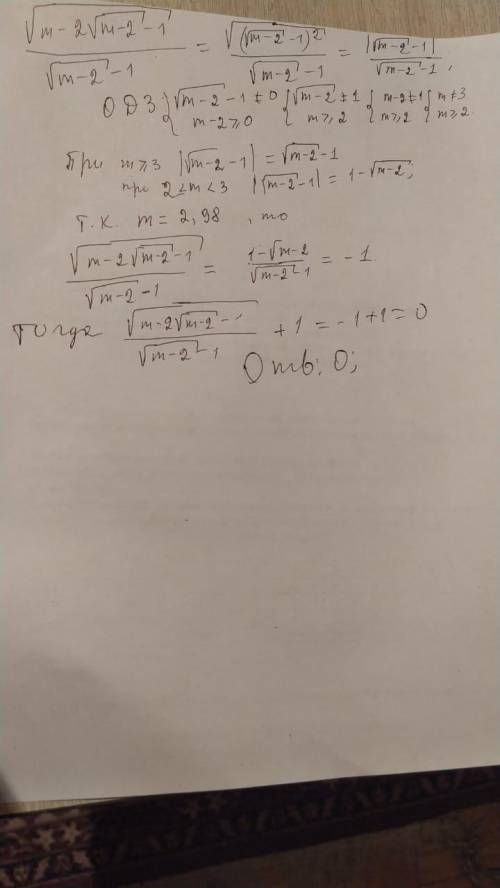 √(m-2√(m-2)-1) / (√(m-2)-1) = √((√(m-2)-1)²) / (√(m-2)-1) = |√(m-2)-1| / (√(m-2)-1),
ОДЗ { √(m-2)-1≠0 m-2≥0 { √(m-2)≠1 m≥2 { m-2≠1 m≥2 { m≠3 m≥2
При m≥3 |√(m-2)-1| = √(m-2)-1
при 2≤m<3 |√(m-2)-1| = 1-√(m-2);
т.к. m=2,98, то
√(m-2√(m-2)-1) / (√(m-2)-1) = (1-√(m-2)) / (√(m-2)-1) = -1.
тогда √(m-2√(m-2)-1) / (√(m-2)-1) + 1 = -1+1=0
Отв: 0;